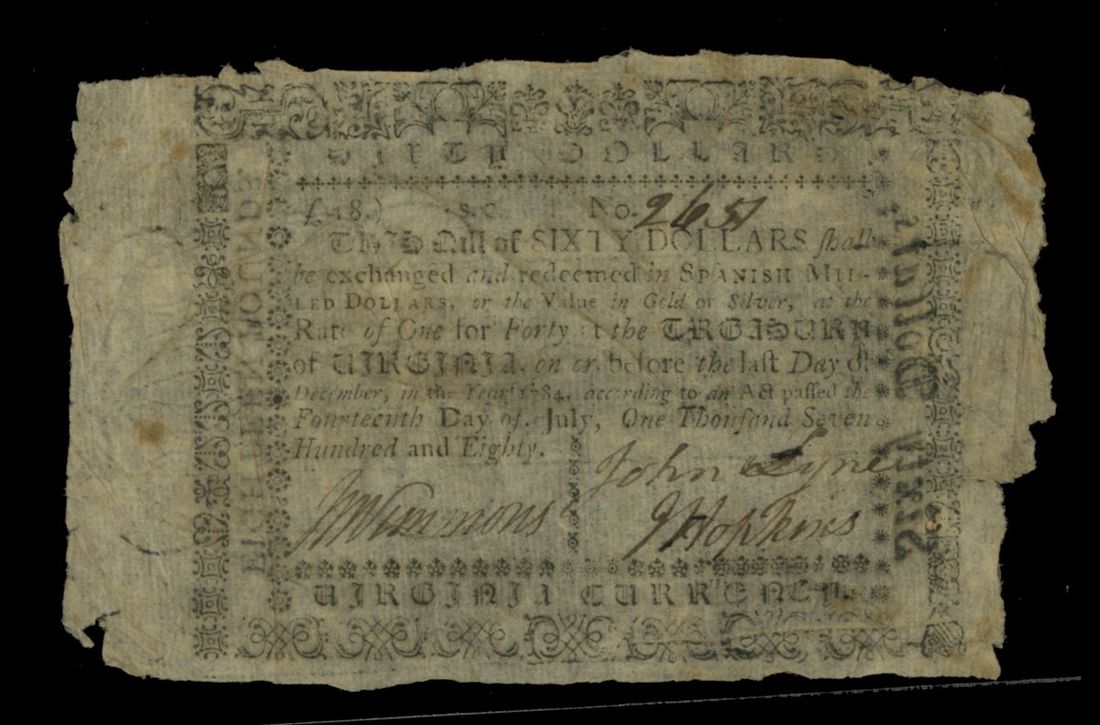 SIXTY DOLLARS
£.18.) No. 2651
THIS Bill of SIXTY DOLLARS ſhall
be exchanged and redeemed in SPANISH MIL-
LED DOLLARS, or the Value in Gold or Silver, at the
Rate of One for Forty at the TREASURY
of VIRGINIA, on or before the laſt Day of
December, in the Year 1784, according to an Act paſſed the
Fourteenth Day of July, One Thouſand Seven
Hundred and Eighty.
John Lyne
Simmons
J Hopkins
VIRGINIA CURRENCY.
EIGHTEEN POUNDS
Sixty Dollars